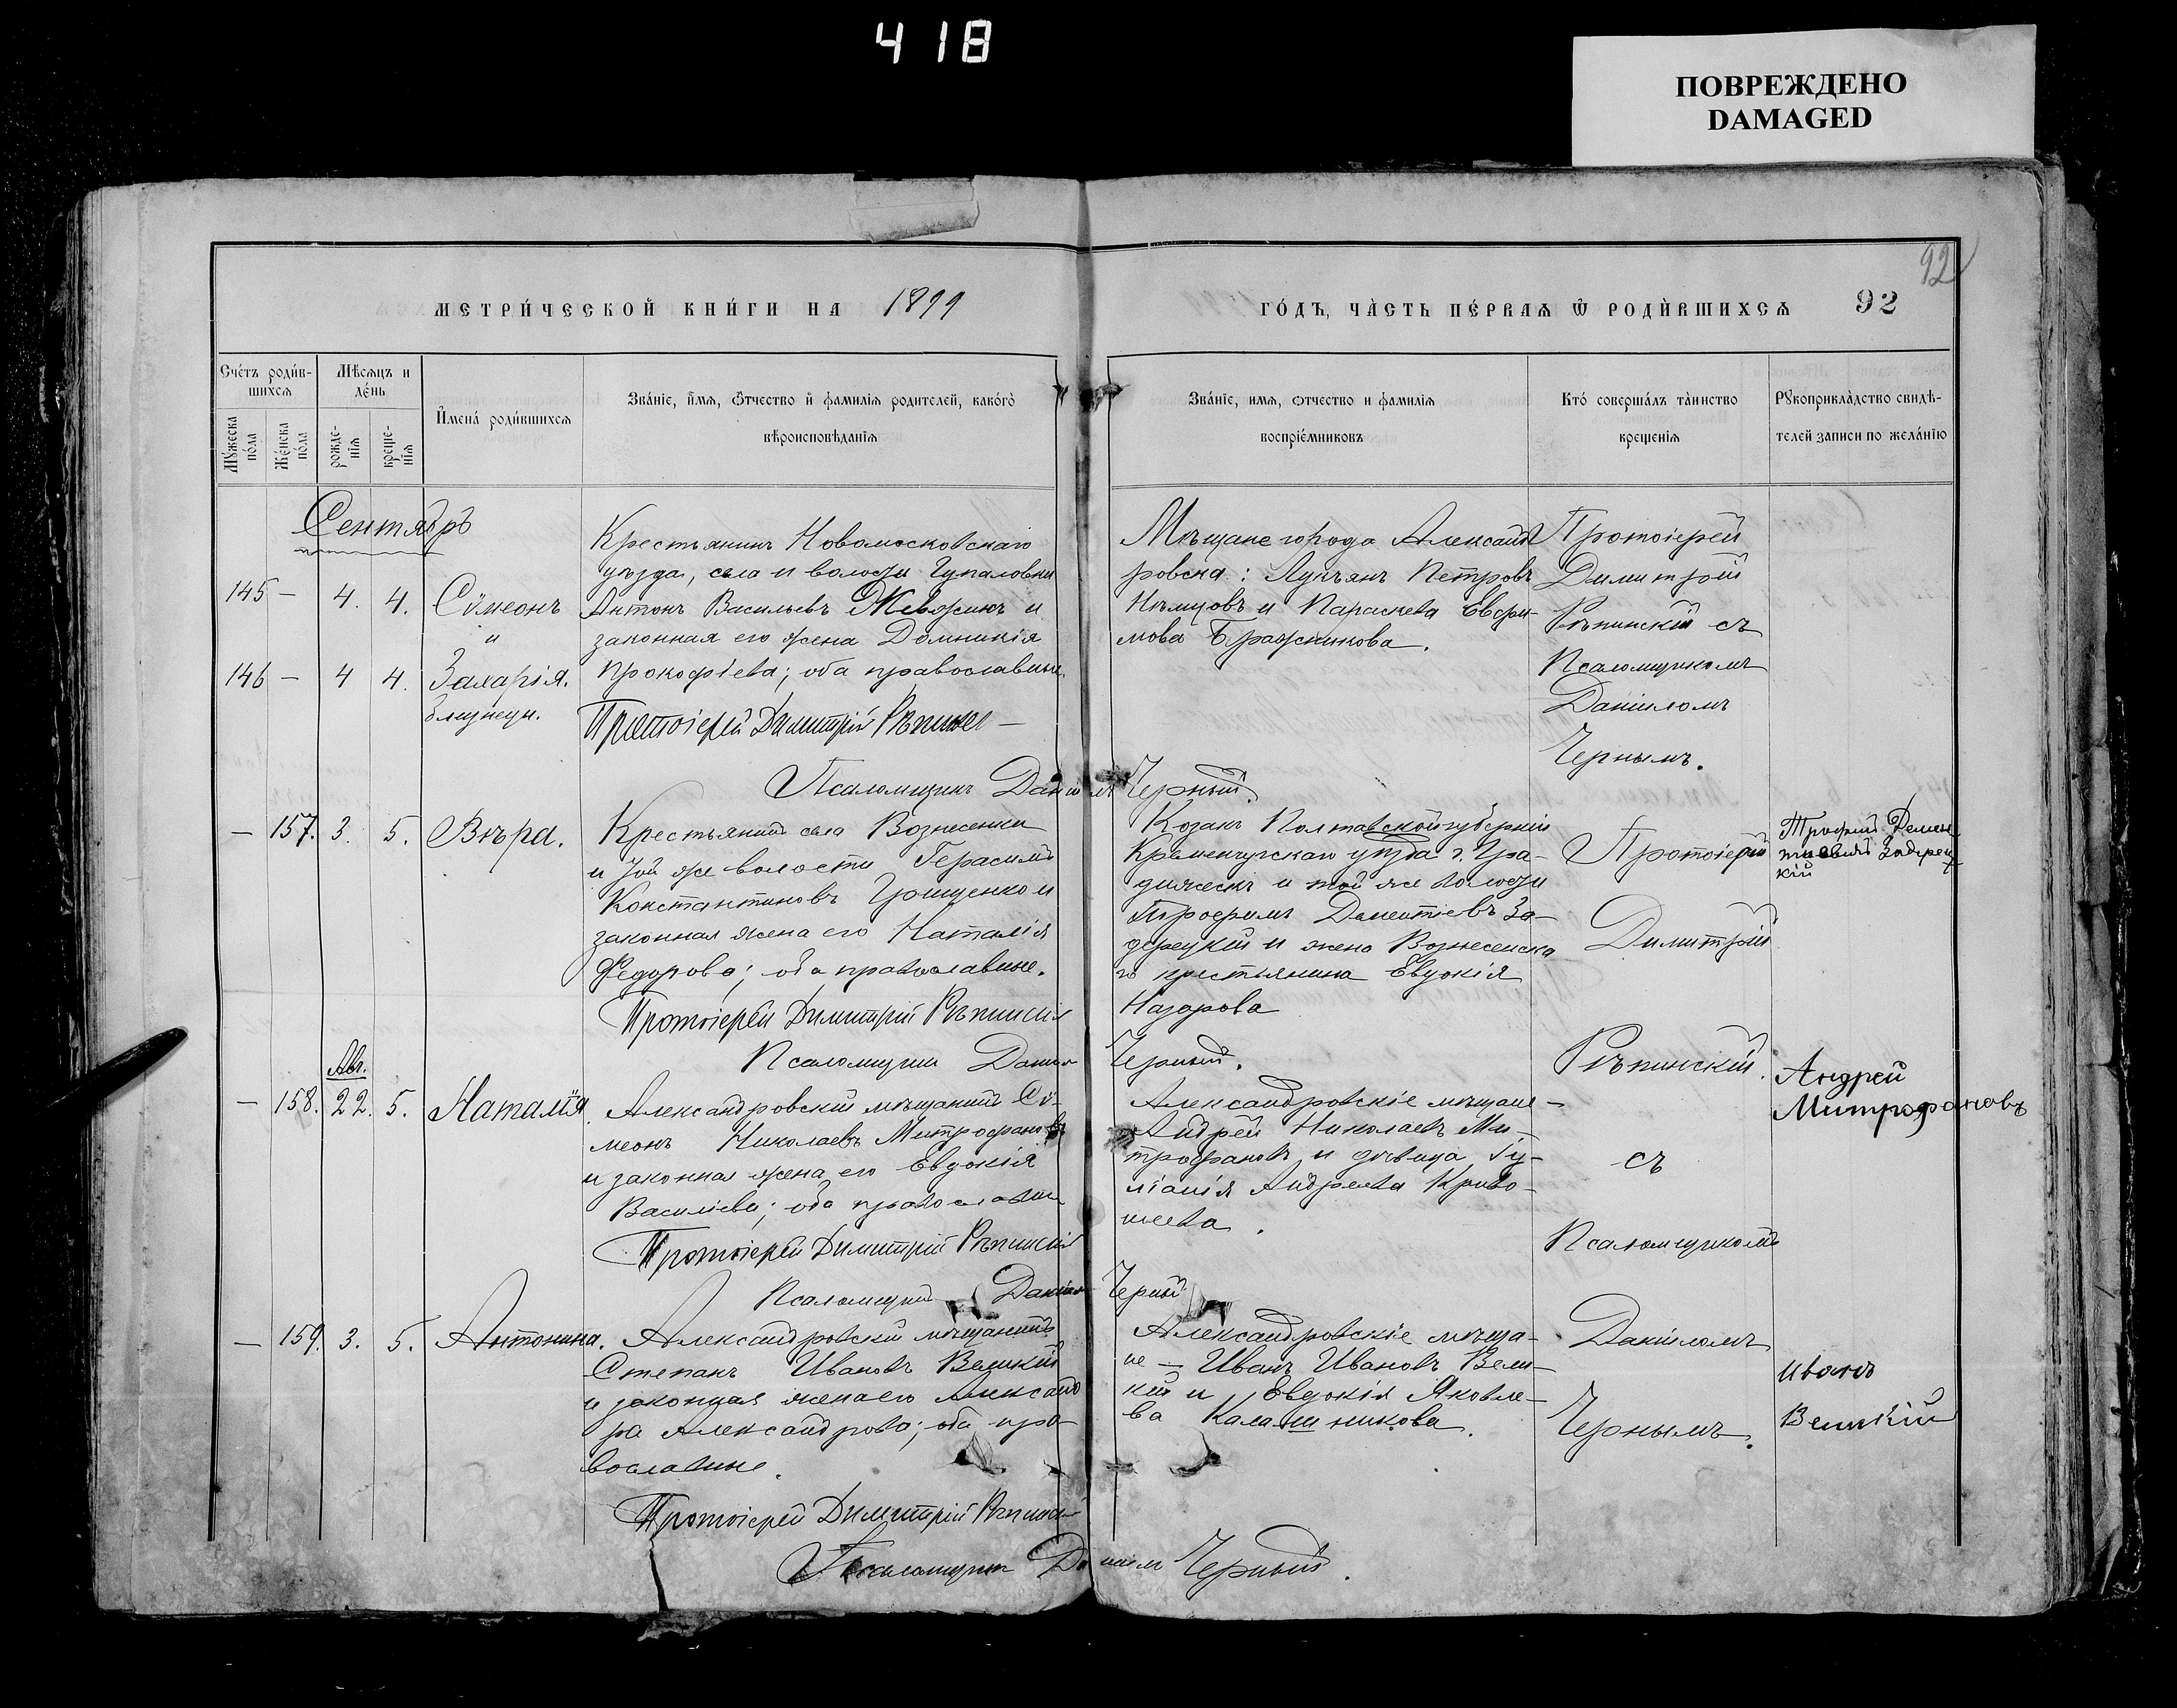 418
ПОВРЕЖДЕНО
DAMAGED
92
МЕТРИ́ЧЕСКОЙ КНИ́ГИ НА 1899
ГО́ДЪ, ЧА̀СТЬ ПЕ́РВАѦ Ѿ РОДЍВШИХСѦ 92
Сче́тъ роди́в-
шихсѧ
Мѣсѧцъ и
де́нь
Мꙋжеска
по́ла
Же́нска
по́ла
рожде-
нїѧ
креще-
нїѧ
И҆мена́ роди́вшихсѧ
Зва́нїе, и҆́мѧ, ѻ҆́тчество и҆ фамилїѧ родителей, како́гѡ
вѣроисповѣданїѧ
Зва́нїе, имѧ, ѻтчество и фамилїѧ
воспрїе́мниковъ
Кто́ соверша́лъ та̀инство
крещенїѧ
Рꙋкоприкла̀дство свидѣ-
телей записи по жела́нїю
Сентябрь
145 — 4. 4. Сѵмеонъ
и
146 — 4 4. Захарія.
близнецы.
Крестьянинъ Новомосковскаго
уѣзда, села и волости Гупаловки
Антонъ Васильевъ и
законная его жена Домникія
Прокофіева; оба православные.
Протоіерей Димитрій Рѣпинскій
Псаломщикъ Даніилъ Черный.
Мѣщане города Александ
ровска: Лукьянъ Петровъ
Нѣмцовъ и Параскева Евфи-
мова Бражникова.
Протоіерей
Димитрій
Рѣпинскій съ
Псаломщикомъ
Даніиломъ
Чернымъ.
— 157. 3. 5. Вѣра.
Крестьянинъ села Вознесенки
и той же волости Герасимъ
Константиновъ Грищенко и
законная жена его Наталія
Федорова; оба православные.
Протоіерей Димитрій Рѣпинскій
Псаломщикъ Даніилъ Черный.
Козакъ Полтавской губерніи
Кременчугскаго уѣзда г. Гра-
дижска и той же волости
Трофимъ Дементіевъ За-
дерецкій и жена Вознесенска
го крестьянина Евдокія
Назарова
Протоіерей
Димитрій
Рѣпинскій
съ
Псаломщикомъ
Даніиломъ
Чернымъ.
Трофимъ Демен-
тіевичъ Задерец-
кій
Авг.
— 158. 22. 5. Наталія
Александровскій мѣщанинъ Сѵ-
меонъ Николаевъ Митрофановъ
и законная жена его Евдокія
Василіева; оба православные
Протоіерей Димитрій Рѣпинскій
Псаломщикъ Даніилъ Черный
Александровскіе мѣщане —
Андрей Николаевъ Ми-
трофановъ и дѣвица Іу-
ліанія Андреева Криво-
шеева.
Андрей
Митрофановъ
— 159. 3. 5. Антонина.
Александровскій мѣщанинъ
Степанъ Ивановъ Великій
и законная жена его Александ
ра Александрова; оба пра-
вославные.
Протоіерей Димитрій Рѣпинскій
Псаломщикъ Даніилъ Черный.
Александровскіе мѣща-
не — Иванъ Ивановъ Вели-
кій и Евдокія Яковле-
ва Калашникова.
Иванъ
Великій